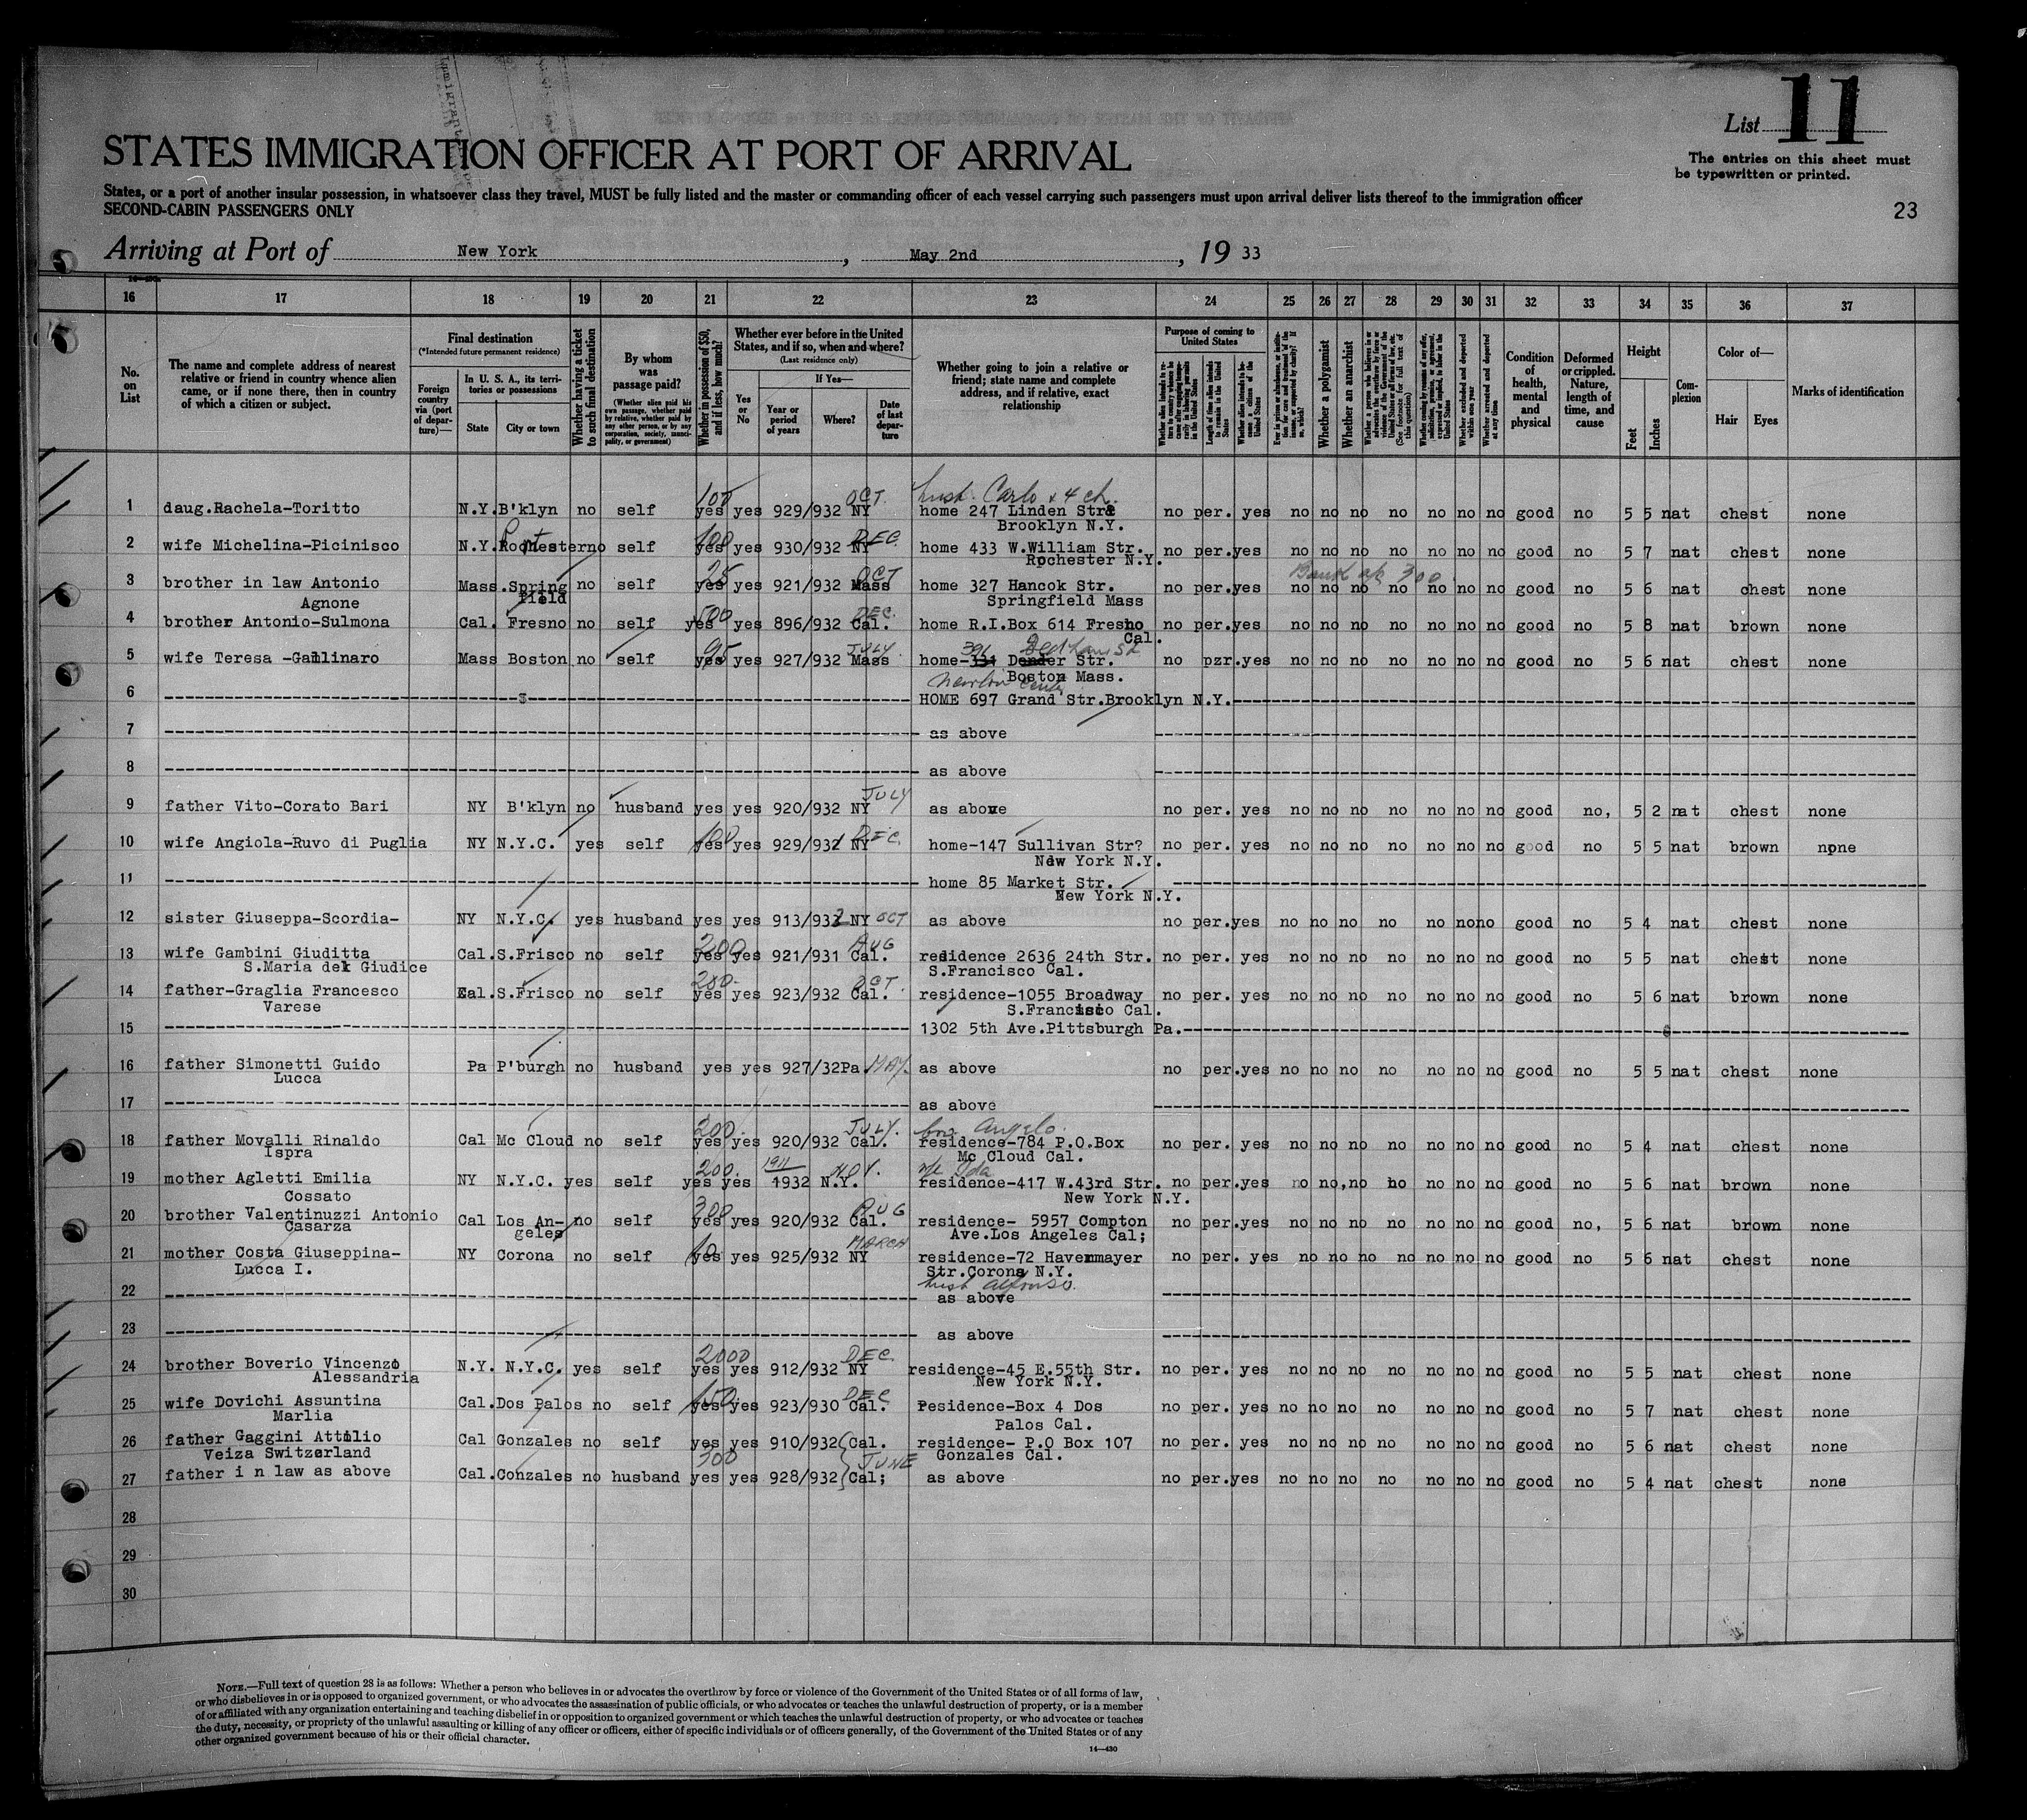 List 11
The entries on this sheet must
be typewritten or printed.
STATES IMMIGRATION OFFICER AT PORT OF ARRIVAL
States, or a port of another insular possession, in whatsoever class they travel, MUST be fully listed and the master or commanding officer of each vessel carrying such passengers must upon arrival deliver lists thereof to the immigration officer
SECOND-CABIN PASSENGERS ONLY
23
Arriving at Port of New York, May 2nd, 19 33
16 17 18 19 20 21 22 23 24 25 26 27 28 29 30 31 32 33 34 35 36 37
No. on List
The name and complete address of nearest relative or friend in country whence alien came, or if none there, then in country of which a citizen or subject.
Final destination
(*Intended future permanent residence)
Foreign country via (port of departure)—
In U. S. A., its territories or possessions
State City or town
Whether having a ticket to such final destination
By whom was passage paid?
(Whether alien paid his own passage, whether paid by relative, whether paid by any other person, or by any corporation, society, municipality, or government)
Whether in possession of $50, and if less, how much?
Whether ever before in the United States, and if so, when and where?
(Last residence only)
Yes or No
If Yes—
Year or period of years
Where?
Date of last departure
Whether going to join a relative or friend; state name and complete address, and if relative, exact relationship
Purpose of coming to United States
Length of time alien intends to remain in the United States
Whether alien intends to become a citizen of the United States
Whether a polygamist
Whether an anarchist
Whether excluded and deported within one year
Whether arrested and deported at any time
Condition of health, mental and physical
Deformed or crippled. Nature, length of time, and cause
Height
Feet Inches
Complexion
Color of—
Hair Eyes
Marks of identification
husb. Carlo + 4 ch.
1 daug.Rachela-Toritto N.Y. B'klyn no self 100 yes yes 929/932 NY OCT. home 247 Linden Stre no per. yes no no no no no no no good no 5 5 nat chest none
Brooklyn N.Y.
2 wife Michelina-Picinisco N.Y. Rochester no self 100 yes yes 930/932 NY DEC. home 433 W.William Str. no per. yes no no no no no no no good no 5 7 nat chest none
Rochester N.Y.
3 brother in law Antonio Mass. Spring no self 25 yes yes 921/932 Mass OCT home 327 Hancok Str. Bank a/c 300 no per. yes no no no no no no no good no 5 6 nat chest none
Agnone field Springfield Mass
4 brother Antonio-Sulmona Cal. Fresno no self 500 yes yes 896/932 Cal. DEC. home R.I.Box 614 Fresno no per. yes no no no no no no no good no 5 8 nat brown none
Cal.
5 wife Teresa -Gallinaro Mass Boston no self 95 yes yes 927/932 Mass JULY home-331 Dender Str. 391 Dedham St no pzr. yes no no no no no no no good no 5 6 nat chest none
Boston Mass.
Newton Center
6 HOME 697 Grand Str.Brooklyn N.Y.
7 as above
8 as above
9 father Vito-Corato Bari NY B'klyn no husband yes yes 920/932 NY JULY as above no per. yes no no no no no no no good no, 5 2 nat chest none
10 wife Angiola-Ruvo di Puglia NY N.Y.C. yes self 100 yes yes 929/932 NY DEC. home-147 Sullivan Str? no per. yes no no no no no no no good no 5 5 nat brown none
New York N.Y.
11 home 85 Market Str.
New York N.Y.
12 sister Giuseppa-Scordia- NY N.Y.C. yes husband yes yes 913/932 NY OCT as above no per. yes no no no no no no no good no 5 4 nat chest none
13 wife Gambini Giuditta Cal. S.Frisco no self 200 yes yes 921/931 Cal. AUG residence 2636 24th Str. no per. yes no no no no no no no good no 5 5 nat chest none
S.Maria del Giudice S.Francisco Cal.
14 father-Graglia Francesco Cal. S.Frisco no self 250 yes yes 923/932 Cal. OCT. residence-1055 Broadway no per. yes no no no no no no no good no 5 6 nat brown none
Varese S.Francisco Cal.
15 1302 5th Ave.Pittsburgh Pa.
16 father Simonetti Guido Pa P'burgh no husband yes yes 927/32 Pa MAY. as above no per. yes no no no no no no no good no 5 5 nat chest none
Lucca
17 as above
18 father Movalli Rinaldo Cal Mc Cloud no self 200. yes yes 920/932 Cal. JULY. Angelo. residence-784 P.O.Box no per. yes no no no no no no no good no 5 4 nat chest none
Ispra Mc Cloud Cal.
19 mother Agletti Emilia NY N.Y.C. yes self 200. yes yes 1911 1932 N.Y. NOV. Ida residence-417 W.43rd Str. no per. yes no no, no no no no no good no 5 6 nat brown none
Cossato New York N.Y.
20 brother Valentinuzzi Antonio Cal Los An- no self 300 yes yes 920/932 Cal. AUG residence- 5957 Compton no per. yes no no no no no no no good no, 5 6 nat brown none
Casarza geles Ave.Los Angeles Cal;
21 mother Costa Giuseppina- NY Corona no self 10 yes yes 925/932 NY MARCH residence-72 Havenmayer no per. yes no no no no no no no good no 5 6 nat chest none
Lucca I. Str.Corona N.Y.
husb Alfonso.
22 as above
23 as above
24 brother Boverio Vincenzo N.Y. N.Y.C. yes self 2000 yes yes 912/932 NY DEC. residence-45 E.55th Str. no per. yes no no no no no no no good no 5 5 nat chest none
Alessandria New York N.Y.
25 wife Dovichi Assuntina Cal. Dos Palos no self 150. yes yes 923/930 Cal. DEC residence-Box 4 Dos no per. yes no no no no no no no good no 5 7 nat chest none
Marlia Palos Cal.
26 father Gaggini Attilio Cal Gonzales no self yes yes 910/932 Cal. residence- P.O Box 107 no per. yes no no no no no no no good no 5 6 nat chest none
Veiza Switzerland 300 JUNE Gonzales Cal.
27 father i n law as above Cal. Gonzales no husband yes yes 928/932 Cal; as above no per. yes no no no no no no no good no 5 4 nat chest none
28
29
30
NOTE.—Full text of question 28 is as follows: Whether a person who believes in or advocates the overthrow by force or violence of the Government of the United States or of all forms of law,
or who disbelieves in or is opposed to organized government, or who advocates the assassination of public officials, or who advocates or teaches the unlawful destruction of property, or is a member
of or affiliated with any organization entertaining and teaching disbelief in or opposition to organized government or which teaches the unlawful destruction of property, or who advocates or teaches
the duty, necessity, or propriety of the unlawful assaulting or killing of any officer or officers, either of specific individuals or of officers generally, of the Government of the United States or of any
other organized government because of his or their official character.
14—430